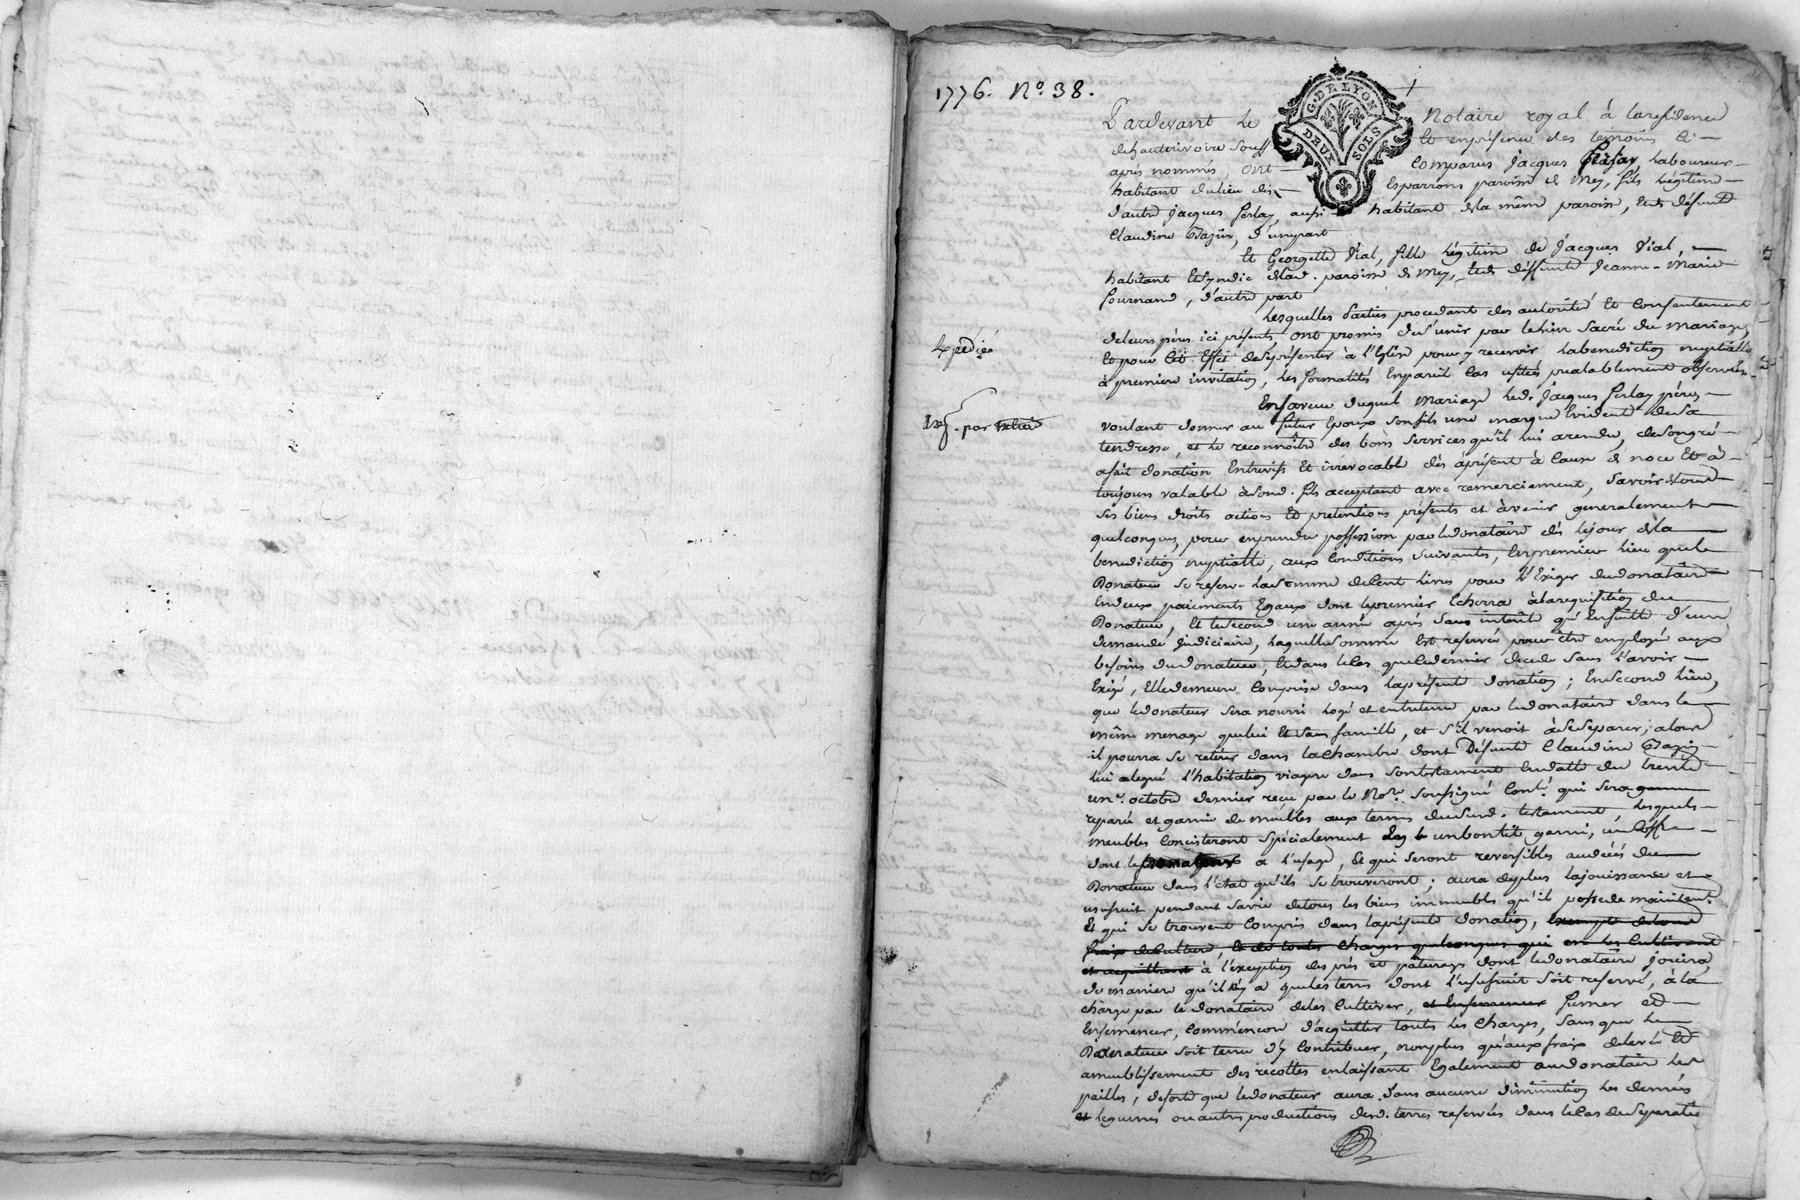 1776. N.o 38.
G. DE LYON
DEUX SOLS
Pardevant le Notaire royal à la residence
de hauterivoire souss. Et en présence des témoins ci
après nommés, ont comparus Jacques Ferlay laboureur
habitant du lieu des Esparrons paroisse de Meys, fils légitime
d'autre Jacques Ferlay, aussi habitant de la même paroisse, et de défunte
Claudine Bazin, d'une part
Et Georgette Vial, fille légitime de Jacques Vial,
habitant et syndic de lad. paroisse de Meys, et de deffunte Jeanne-Marie
fournand, d'autre part
Lesquelles Parties procedant des autorité et consentement
de leurs pères ici présents, ont promis de s'unir par le lien sacré du mariage,
Et pour cet effet de se présenter à l'Eglise pour y recevoir la benediction nuptialle
à premiere invitation, les formalités en pareil cas usitées préalablement observées.
Expédié
En faveur duquel mariage led. Jacques Ferlay père
voulant donner au futur Epoux son fils une marque Evidente de sa
tendresse, et le reconnoître des bons services qu'il lui a rendu, de son gré
a fait donation Entrevifs Et irrevocable dès àprésent à cause de noce Et à
toujours valable à sond. fils acceptant avec remerciement, savoir de tous
ses biens droits actions Et pretentions présents et avenir generalement
quelconques, pour en prendre possession par le donataire dès le jour de la
benediction nuptialle, aux conditions suivantes, En premier lieu que le
Donateur se reserve la somme de Cent livres pour l'Exiger du donataire
En deux paiements Egaux dont le premier Echerra à la requisition du
Donateur, Et le second une année après sans intérêt qu'Ensuitte d'une
demande Judiciaire, laquelle somme Est reservée pour être employée aux
besoins du donateur, Et dans le cas que le dernier decede sans l'avoir
Exigé, Elle demeure Comprise dans la présente donation; En second lieu,
que le donateur sera nourri logé et entretenu par le donataire dans le
même menage que lui Et sa famille, et s'il venoit à se separer, alors
il pourra se retirer dans la chambre dont Défunte Claudine Bazin
lui a legué l'habitation viagere dans son testament En datte du trente
un.e octobre dernier reçu par le No.re soussigné Cont.é qui sera
reparée et garnie de meubles aux termes du susd. testament, lesquels
meubles Concisteront spécialement En un bon lit garni, un coffre
dont le donateur a l'usage, Et qui seront reversibles au décès du
Donateur dans l'etat qu'ils se trouveront; aura de plus la jouissance et
usufruit pendant sa vie de tous les biens immeubles qu'il possede maintent.
Et qui se trouvent Compris dans la présente donation, Exempte de tous
fraix de culture, Et de toutes charges quelconques qui en les cultivant
et acquittant à l'exception des prés et pâturages dont le donataire jouira,
de maniere qu'il n'y a que les terres dont l'usufruit soit reservé, à la
charge par le donataire de les Cultiver, et Ensemencer fumer et
Ensemencer, comme encor d'acquitter toutes les charges, sans que le
Donateur soit tenu d'y Contribuer, non plus qu'aux fraix de levée Et
ameublissement des recoltes en laissant Egalement au donataire les
pailles, de sorte que le donateur aura sans aucune diminution les denrées
et legumes ou autres productions desd. terres reservées dans le cas de separation